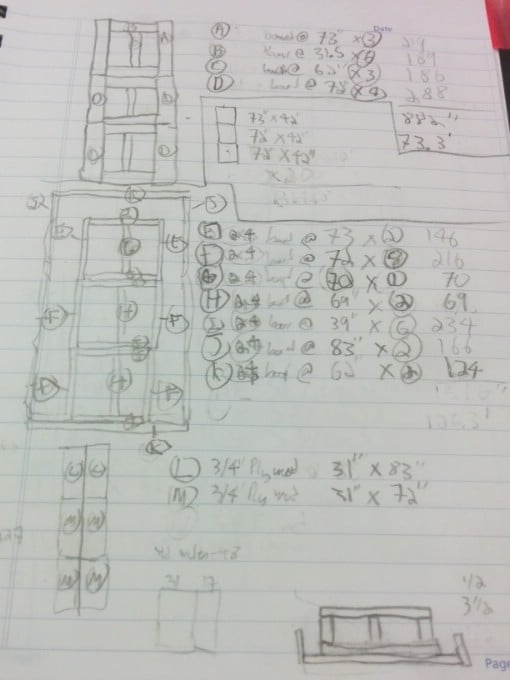 Date
A board @ 73" x 3 219
B board @ 31.5 x 6 189
C board @ 62" x 3 186
D board @ 72 x 4 288
882"
73.3'
73" x 42"
72" x 42"
72" x 42"
x 20
E 2x4 board @ 73 x 2 146
F 2x4 board @ 72 x 216
G 2x4 board @ 70 x 1 70
H 2x4 board @ 69" x 2 69
I 2x4 board @ 39" x 6 234
J 2x4 board @ 83" x 2 166
K 2x4 board @ 62" x 2 124
126.3'
L 3/4" Plywood 31" x 83"
M 3/4" Plywood 31" x 72"
31 17
1/2
3 1/2
Page